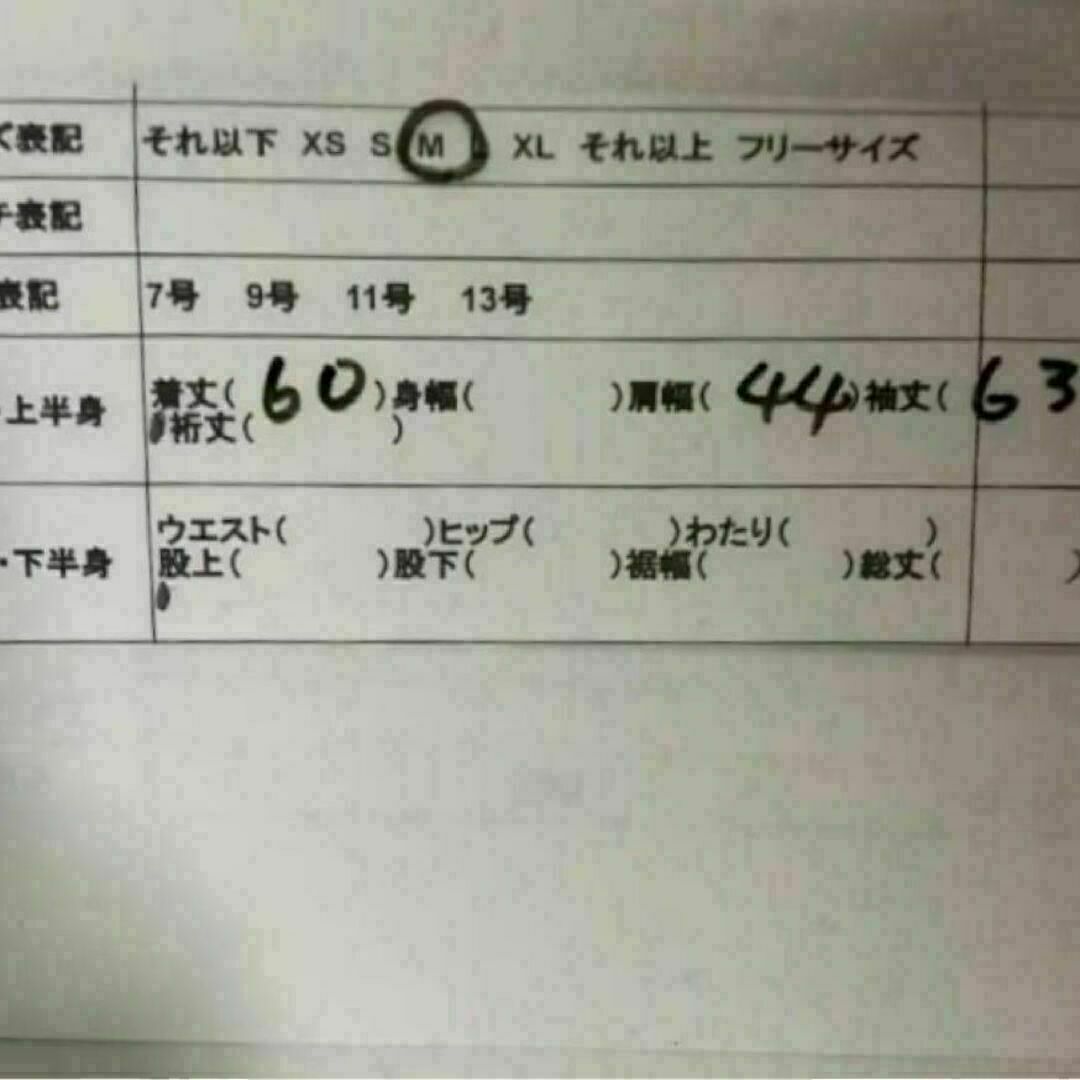 ズ表記 それ以下 XS S M L XL それ以上 フリーサイズ
チ表記
表記 7号 9号 11号 13号
・上半身 着丈( 60 )身幅( )肩幅( 44 )袖丈( 63
裄丈( )
・下半身 ウエスト( )ヒップ( )わたり( )
股上( )股下( )裾幅( )総丈( )